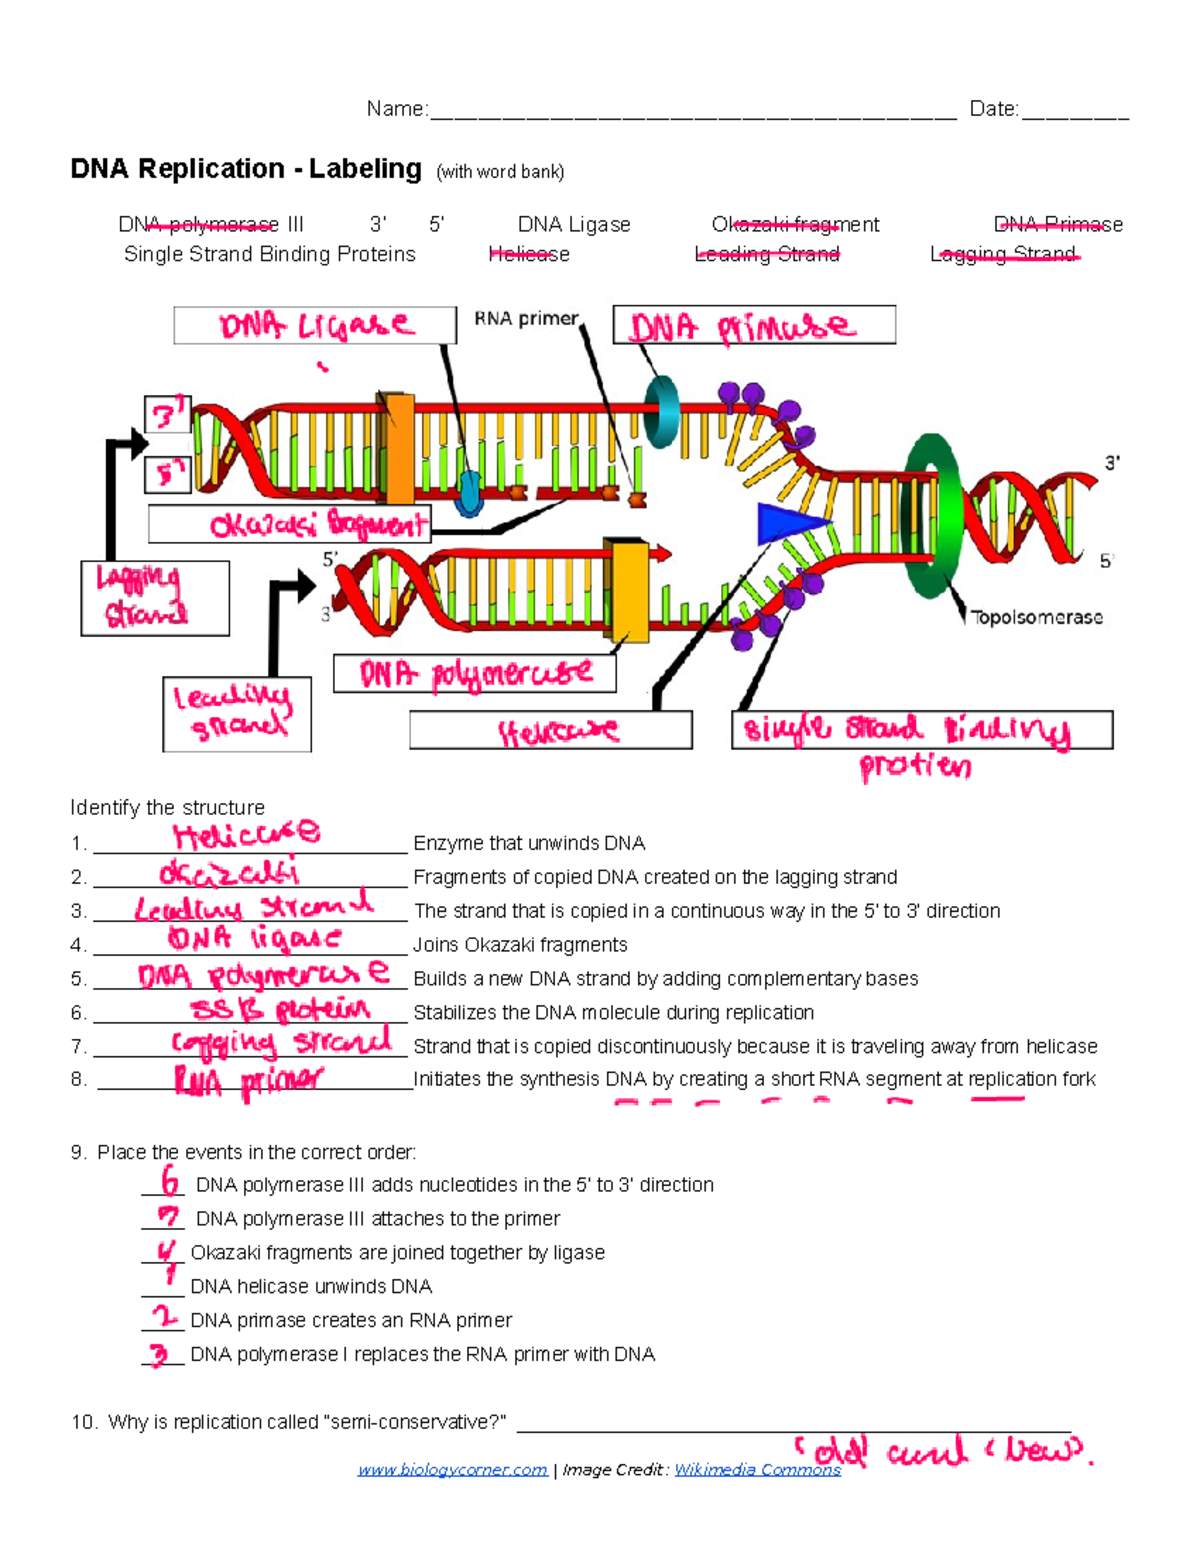 Name:____________________________________________ Date:_________
DNA Replication - Labeling (with word bank)
DNA polymerase III 3' 5' DNA Ligase Okazaki fragment DNA Primase
Single Strand Binding Proteins Helicase Leading Strand Lagging Strand
DNA Ligase RNA primer DNA primase
3'
5'
3'
Okazaki fragment
5'
5'
Lagging
strand
3'
TopoIsomerase
DNA polymerase
Leading
strand
Helicase
single strand Binding
protien
Identify the structure
1. Helicase Enzyme that unwinds DNA
2. Okazaki Fragments of copied DNA created on the lagging strand
3. Leading strand The strand that is copied in a continuous way in the 5' to 3' direction
4. DNA ligase Joins Okazaki fragments
5. DNA polymerase Builds a new DNA strand by adding complementary bases
6. SSB protein Stabilizes the DNA molecule during replication
7. Lagging strand Strand that is copied discontinuously because it is traveling away from helicase
8. RNA primer Initiates the synthesis DNA by creating a short RNA segment at replication fork
9. Place the events in the correct order:
6 DNA polymerase III adds nucleotides in the 5' to 3' direction
7 DNA polymerase III attaches to the primer
4 Okazaki fragments are joined together by ligase
1 DNA helicase unwinds DNA
2 DNA primase creates an RNA primer
3 DNA polymerase I replaces the RNA primer with DNA
10. Why is replication called "semi-conservative?" ____________________
'old' and 'New'.
www.biologycorner.com | Image Credit: Wikimedia Commons